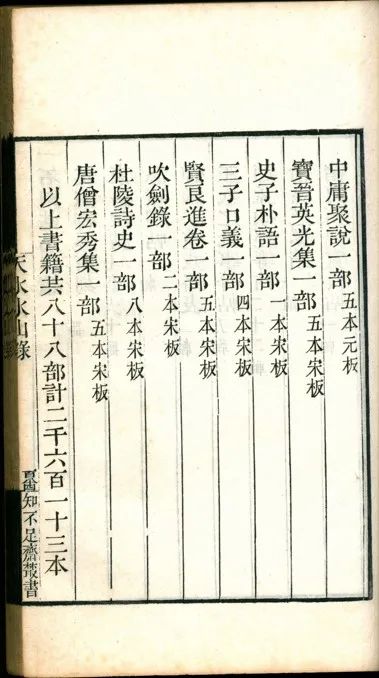 中庸聚說一部五本元板
寶晉英光集一部五本宋板
史子朴語一部一本宋板
三子口義一部四本宋板
賢良進卷一部五本宋板
吹劍錄一部二本宋板
杜陵詩史一部八本宋板
唐僧宏秀集一部五本宋板
以上書籍共八十八部計二千六百一十三本
天水冰山錄
知不足齋叢書